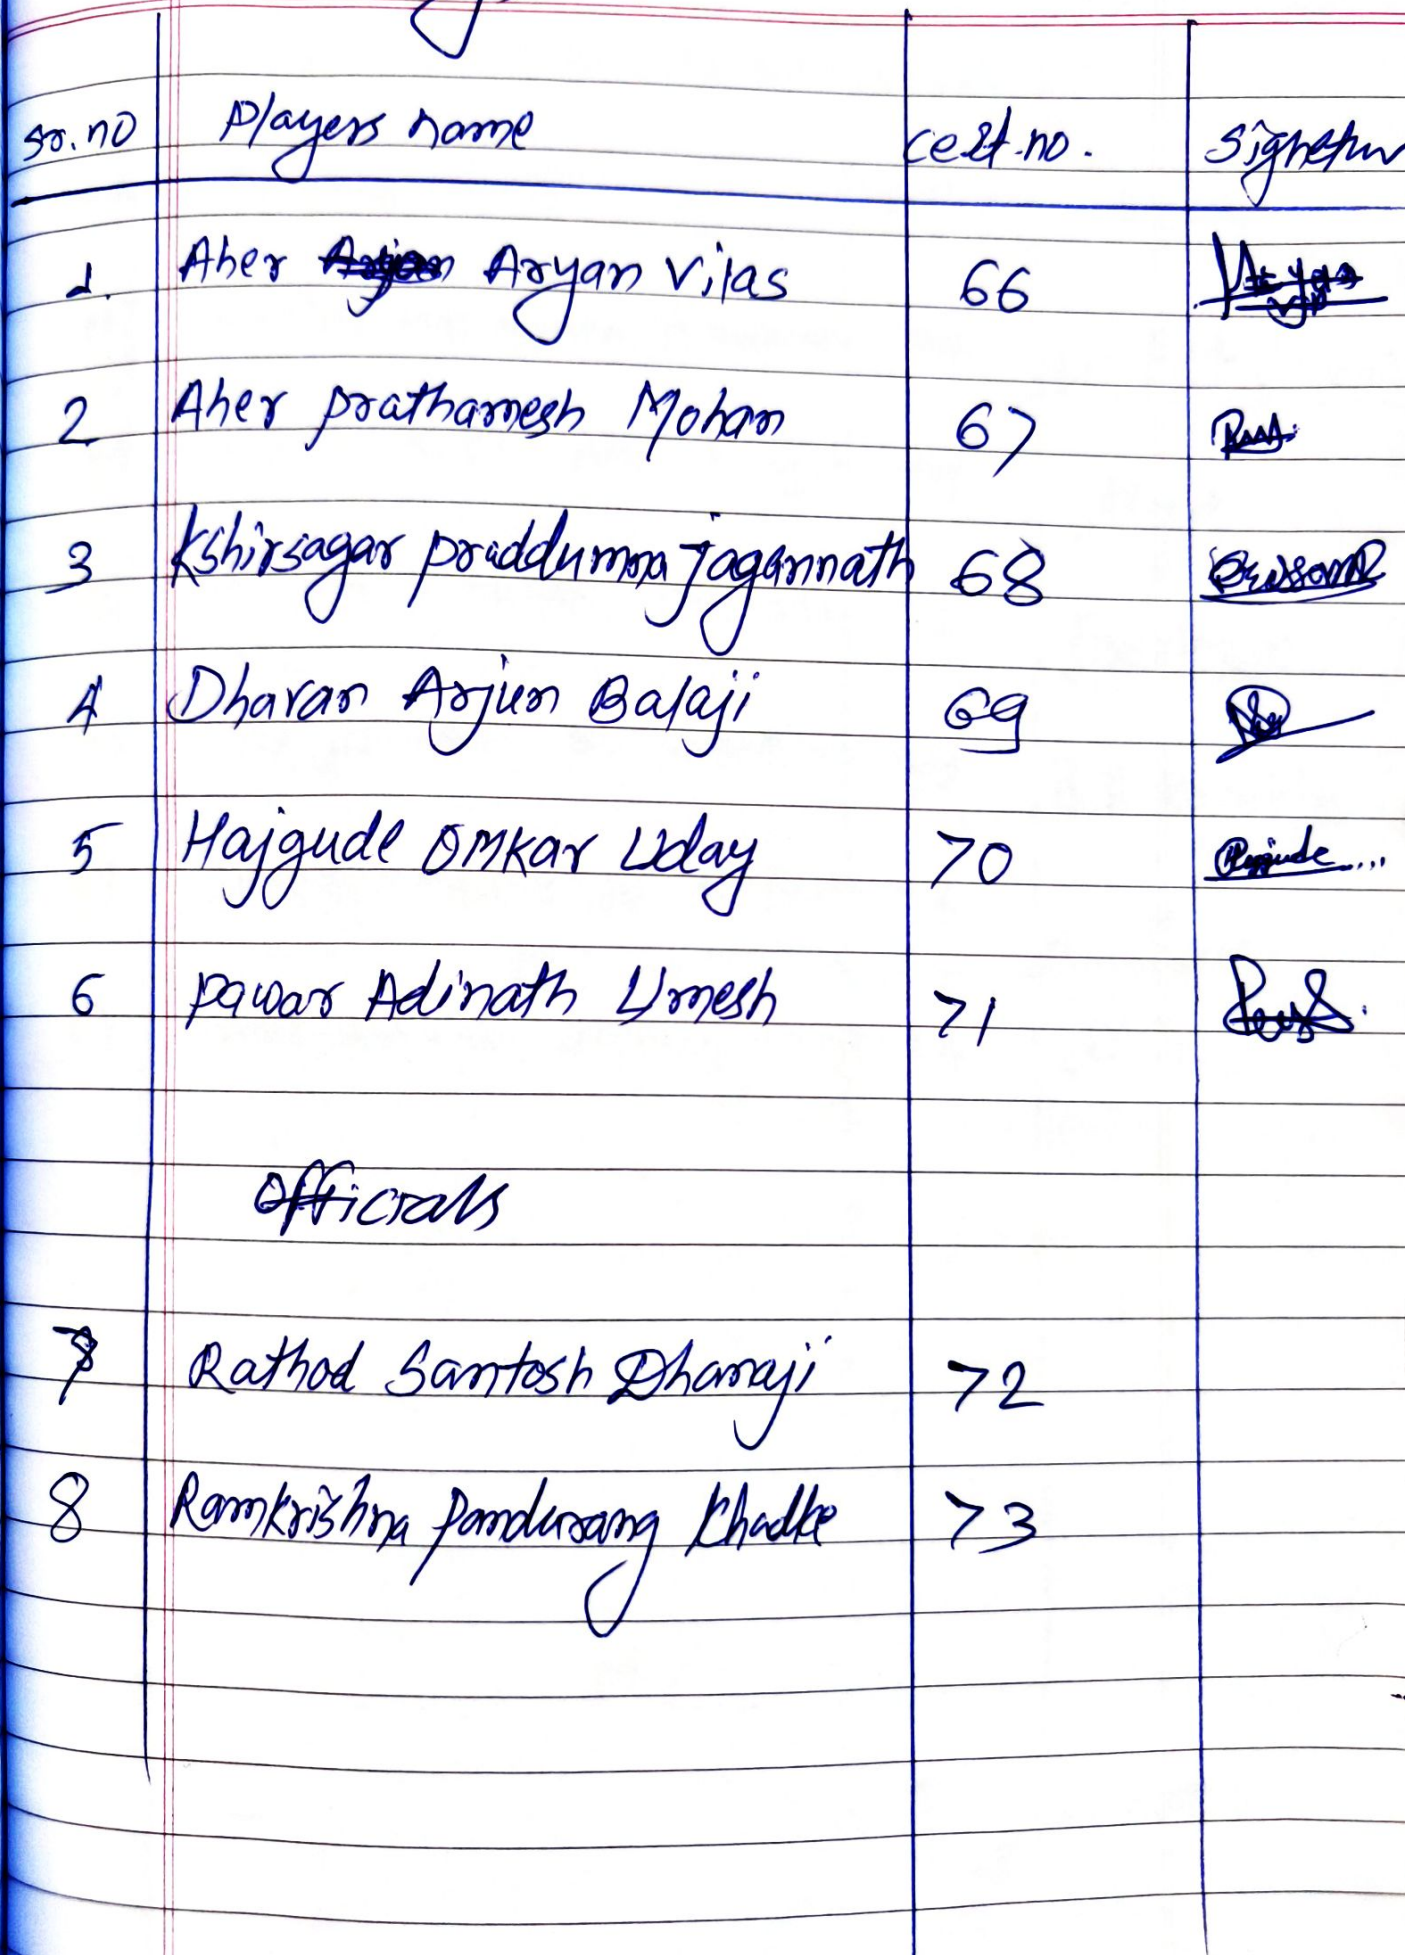 Sr.no Players name Cert.no. Signetur
1. Aher Aryan Vilas 66
2 Aher prathamesh Mohan 67
3 Kshirsagar praddumna jagannath 68
4 Dharan Arjun Balaji 69
5 Hajgude OMKar Uday 70
6 pawar Adinath Umesh 71
Officials
7 Rathod Santosh Dhanaji 72
8 Ramkrishna Pandurang Khadke 73